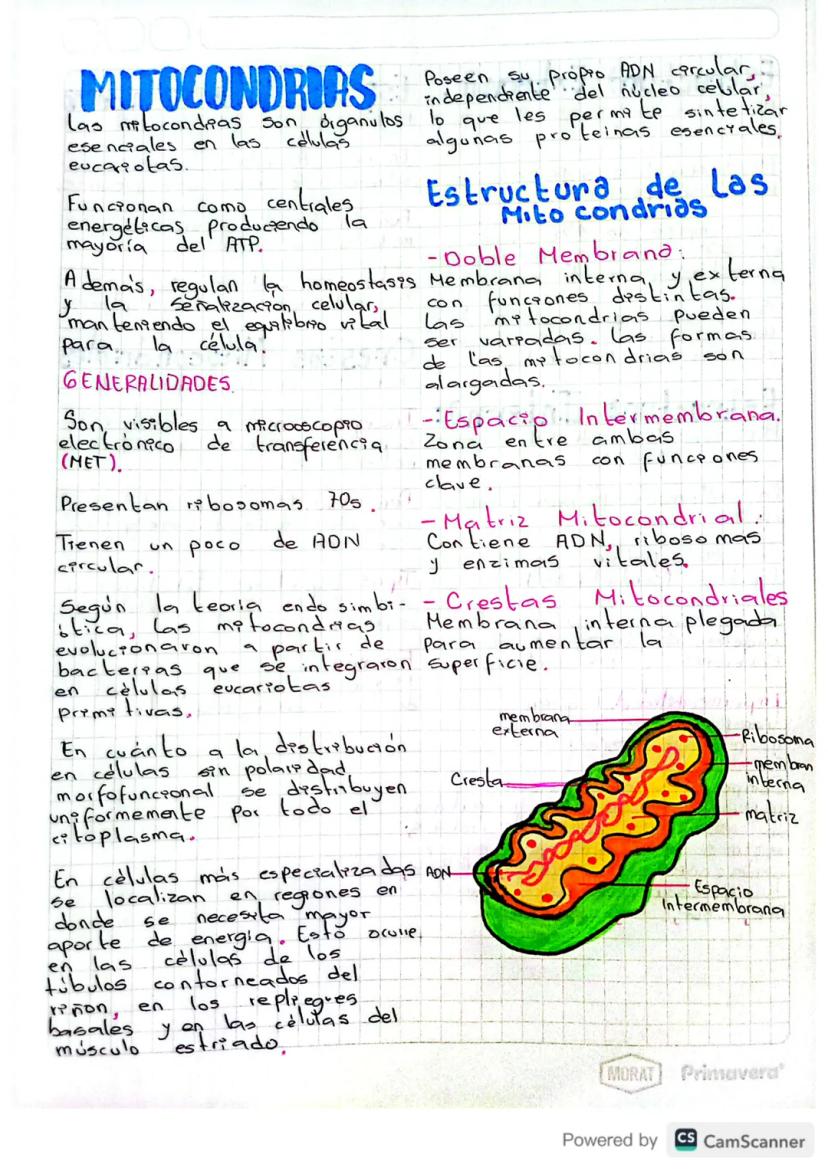 MITOCONDRIAS
Las mitocondrias son órganulos
esenciales en las células
eucariotas.
Funcionan como centrales
energéticas produciendo la
mayoría del ATP.
Además, regulan la homeostasis
y la señalización celular,
manteniendo el equilibrio vital
para la célula.
GENERALIDADES.
Son visibles a microoscopio
electrónico de transferencia
(MET).
Presentan ribosomas 70s.
Tienen un poco de ADN
circular.
Según la teoría endo simbi-
ótica, las mitocondrias
evolucionaron a partir de
bacterias que se integraron
en células eucariotas
primitivas.
En cuánto a la distribución
en células sin polaridad
morfofuncional se distribuyen
uniformemente por todo el
citoplasma.
En células más especializadas
se localizan en regiones en
donde se necesita mayor
aporte de energía. Esto ocurre
en las células de los
túbulos contorneados del
riñon, en los repliegues
basales y en las células del
músculo estriado.
Poseen su propio ADN circular,
independiente del núcleo celular,
lo que les permite sintetizar
algunas proteinas esenciales.
Estructura de las
Mitocondrias
- Doble Membrana:
Membrana interna y externa
con funciones distintas.
Las mitocondrias pueden
ser variadas. las formas
de las mitocondrias son
alargadas.
- Espacio Intermembrana.
Zona entre ambas
membranas con funciones
clave.
- Matriz Mitocondrial:
Contiene ADN, ribosomas
y enzimas vitales.
- Crestas Mitocondriales
Membrana interna plegada
para aumentar la
superficie.
membrana
externa
Ribosoma
membran
interna
Cresta
matriz
ADN
Espacio
Intermembrana
MORAT Primavera
Powered by CS CamScanner